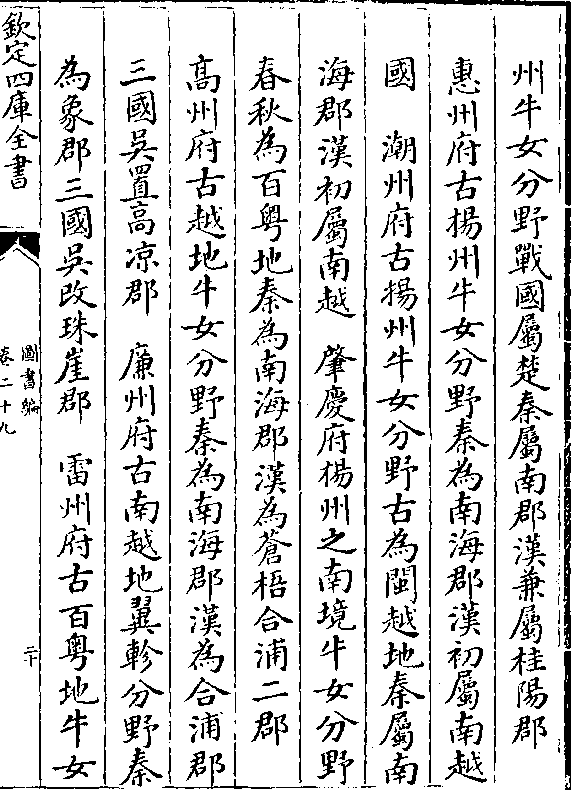 州牛女分野戰國屬楚秦屬南郡漢兼屬桂陽郡
惠州府古揚州牛女分野秦為南海郡漢初屬南越
國　潮州府古揚州牛女分野古為閩越地秦屬南
海郡漢初屬南越　肇慶府楊州之南境牛女分野
春秋為百粤地秦為南海郡漢為蒼梧合浦二郡
髙州府古越地牛女分野秦為南海郡漢為合浦郡
三國吳置高凉郡　廉州府古南越地翼軫分野秦
為象郡三國吳改珠崖郡　雷州府古百粤地牛女
欽定四庫全書
圖書編
卷二十九
二十